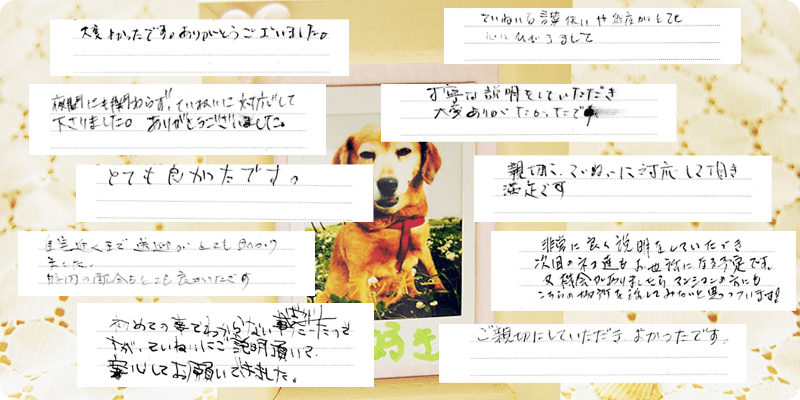 大変よかったです。ありがとうございました。
夜間にも関わらず、ていねいに対応して
下さりました。ありがとうございました。
とても良かったです。
送迎がとても助かり
ました。
時間の都合もとても良かったです
初めての事でわからない
が、ていねいにご説明頂いて、
安心してお願いできました。
ていねいな言葉使いや態度がとても
丁寧な説明をしていただき
大変ありがたかったで
親切に、ていねいに対応して頂き
満足です
非常に良く説明をしていただき
次回のネコ達もお世話になる予定です。
又機会がありましたら、マンションの方にも
こちらの場所を話してみたいと思っています!
ご親切にしていただき よかったです。